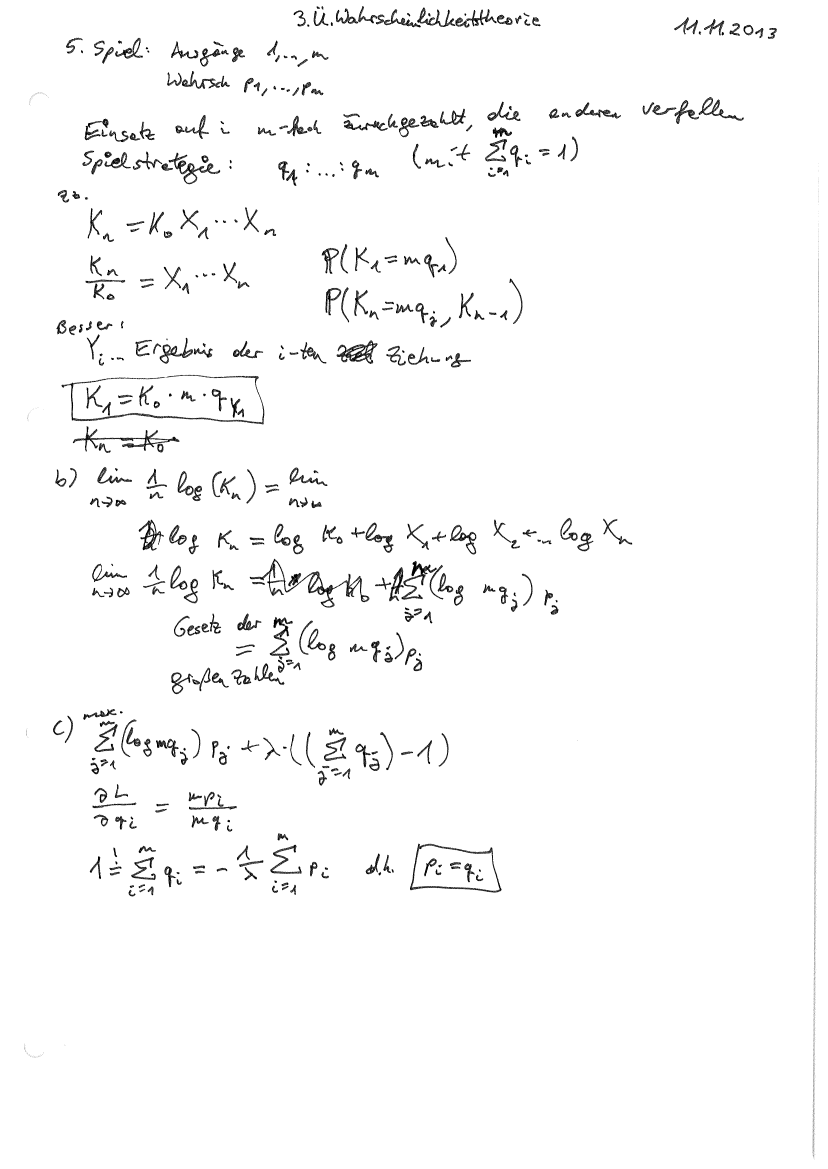 3. Ü. Wahrscheinlichkeitstheorie
11.11.2013
5. Spiel: Ausgänge 1,..,m
Wahrsch p₁,...,pₘ
Einsatz auf i m-fach zurückgezahlt, die anderen verfallen
Spielstrategie: q₁:...:qₘ (mit ∑_{i=1}^{m} qᵢ = 1)
zb.
Kₙ = K₀ X₁ ⋯ Xₙ
Kₙ/K₀ = X₁ ⋯ Xₙ P(K₁ = mq₁)
P(Kₙ = mqⱼ, Kₙ₋₁)
Besser:
Yᵢ... Ergebnis der i-ten Ziehung
K₁ = K₀ · m · q_{Y₁}
Kₙ = K₀
b) lim_{n→∞} 1/n log(Kₙ) = lim_{n→∞}
log Kₙ = log K₀ + log X₁ + log X₂ + ... log Xₙ
lim_{n→∞} 1/n log Kₙ = 1/n · log K₀ + ∑_{j=1}^{m} (log mqⱼ) pⱼ
Gesetz der
= ∑_{j=1}^{m} (log mqⱼ) pⱼ
großen Zahlen
c) max.
∑_{j=1}^{m} (log mqⱼ) pⱼ + λ·((∑_{j=1}^{m} qⱼ) − 1)
∂L/∂qᵢ = mpᵢ/mqᵢ
1 =! ∑_{i=1}^{m} qᵢ = − 1/λ ∑_{i=1}^{m} pᵢ d.h. pᵢ = qᵢ